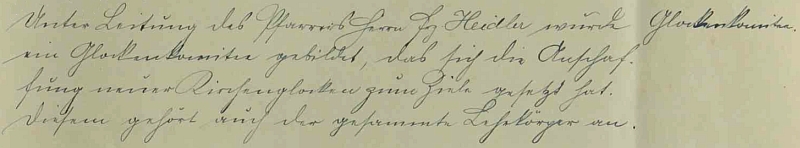 Unter Leitung des Pfarrers Herrn Fz Heidler wurde
ein Glockenkomitee gebildet, das sich die Anschaf-
fung neuer Kirchenglocken zum Ziele gesetzt hat.
Diesem gehört auch der gesammte Lehrkörper an.
Glockenkomitee.